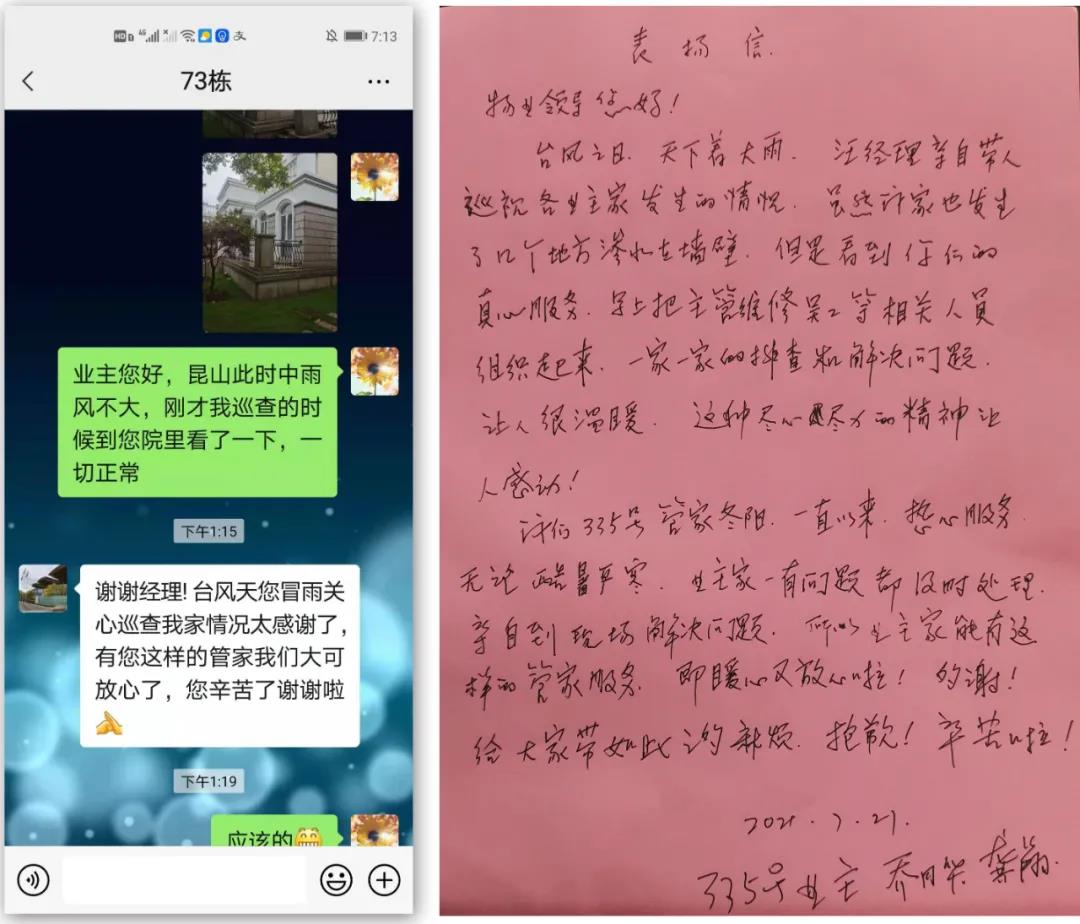 7:13
73栋
业主您好，昆山此时中雨
风不大，刚才我巡查的时
候到您院里看了一下，一
切正常
下午1:15
谢谢经理! 台风天您冒雨关
心巡查我家情况太感谢了，
有您这样的管家我们大可
放心了，您辛苦了谢谢啦
下午1:19
应该的
表扬信.
物业领导您好!
台风之日. 天下着大雨. 汪经理亲自带人
巡视各业主家发生的情况. 虽然许家也发生
了几个地方渗水在墙壁. 但是看到你们的
真心服务. 早上把主管维修 等相关人员
组织起来. 一家一家的排查和解决问题.
让人很温暖. 这种尽心尽力的精神让
人感动!
许们335号管家冬阳. 一直以来. 热心服务.
无论酷暑严寒. 业主家一有问题都及时处理.
亲自到现场解决问题. 所以业主家能有这
样的管家服务. 即暖心又放心啦! 的谢!
给大家带如此 的 烦. 抱歉! 辛苦啦!
2021.7.21.
335号业主